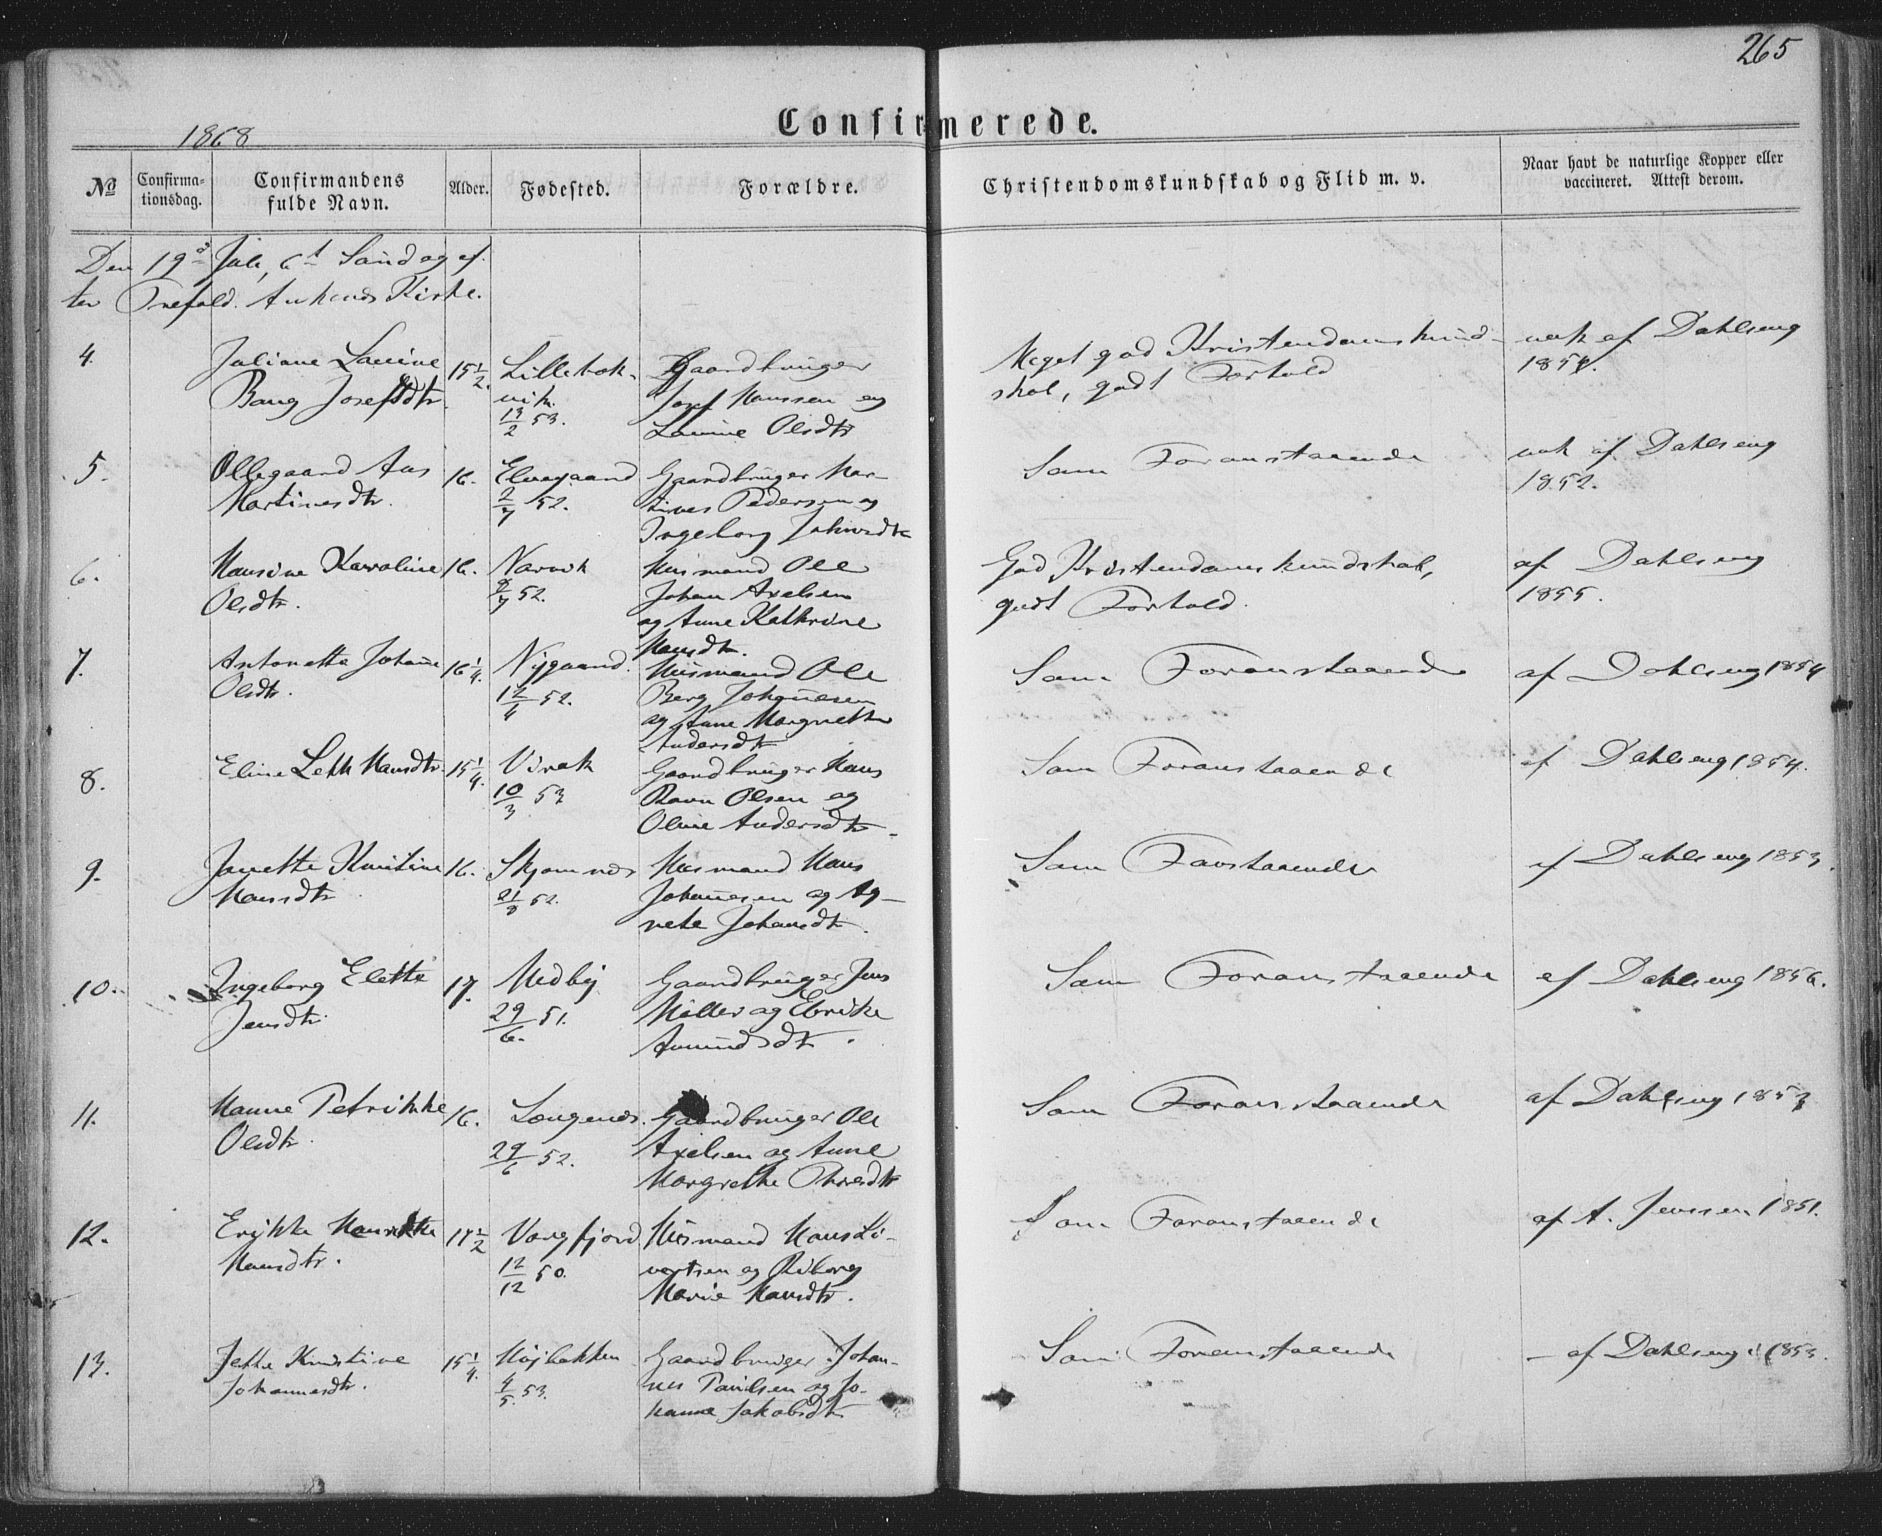 265
Confirmerede.
1868
No Confirmationsdag. Confirmandens fulde Navn. Alder. Fødested. Forældre. Christendomskundskab og Flid m. v. Naar havt de naturlige Kopper eller vaccineret. Attest derom.
Den 19de Juli, 6t Søndag ef-
ter Trefold. Ankenes Kirke.
4. Juliane Lavine 15 1/2. Lillebok- Gaardbruger Meget god Kristendomskund- vak af Dahlseng
Bang Josefsdtr. vik. Josef Hanssen og skab, godt Forhold 1854.
13/2 53. Lavine Olsdtr
5. Ollegaard Aas 16. Elvegaard Gaardbruger Mar- Som Foranstaaende vak af Dahlseng
Martinesdtr. 2/7 52. tines Pedersen og 1852.
Ingeborg
6. Hansine Karoline 16. Narvik Husmand Ole God Kristendomskundskab, af Dahlseng
Olsdtr. 9/7 52. Johan Axelsen godt Forhold. 1855.
og Anne Kathrine
Hansdtr.
7. Antonette Johanne 16 1/4. Nygaard. Husmand Ole Som Foranstaaende af Dahlseng 1854
Olsdtr. 12/4 52. Berg Johannesen
og Anne Margrethe
Andersdtr
8. Eline Leth Hansdtr. 15 1/4. Virak Gaardbruger Hans Som Foranstaaende af Dahlseng 1854.
10/3 53 Ravn Olsen og
Oline Andersdtr.
9. Janette Kristine 16. Skjomnes Husmand Hans Som Forstaaende af Dahlseng 1853.
Hansdtr 52. Johannesen og Ag-
nete Johansdtr.
10. Ingeborg Elette 17. Medby Gaardbruger Jens Som Foranstaaende af Dahlseng 1856.
Jensdtr. 29/6. 51. Møller og Elrike
Amundsdtr.
11. Hanne Petrikke 16. Længenes. Gaardbruger Ole Som Foranstaaende af Dahlseng 1853
Olsdtr. 29/6 52. Axelsen og Anne
Margrethe
12. Erikke Henrikke 17 1/2 Vargfjord Husmand Hans Si- Som Foranstaaende af A. Jenssen 1851.
Hansdtr. 12/12 50. vertsen og Riborg
Marie Hansdtr.
13. Jette Kristine 15 1/4. Højbakken Gaardbruger Johan- Som Foranstaaende – af Dahlseng 1853.
Johannesdtr. 4/5. 53. nes Paulsen og Jo-
hanne Jakobsdtr